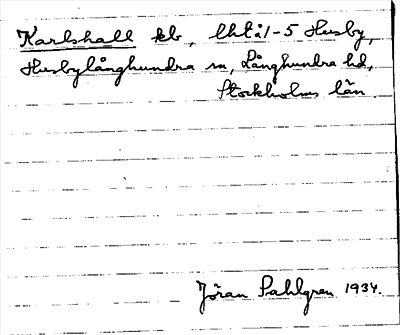 Karlshall kb, Uht å 1-5 Husby,
Husbylånghundra sn, Långhundra hd,
Stockholms län.
Jöran Sahlgren 1934.